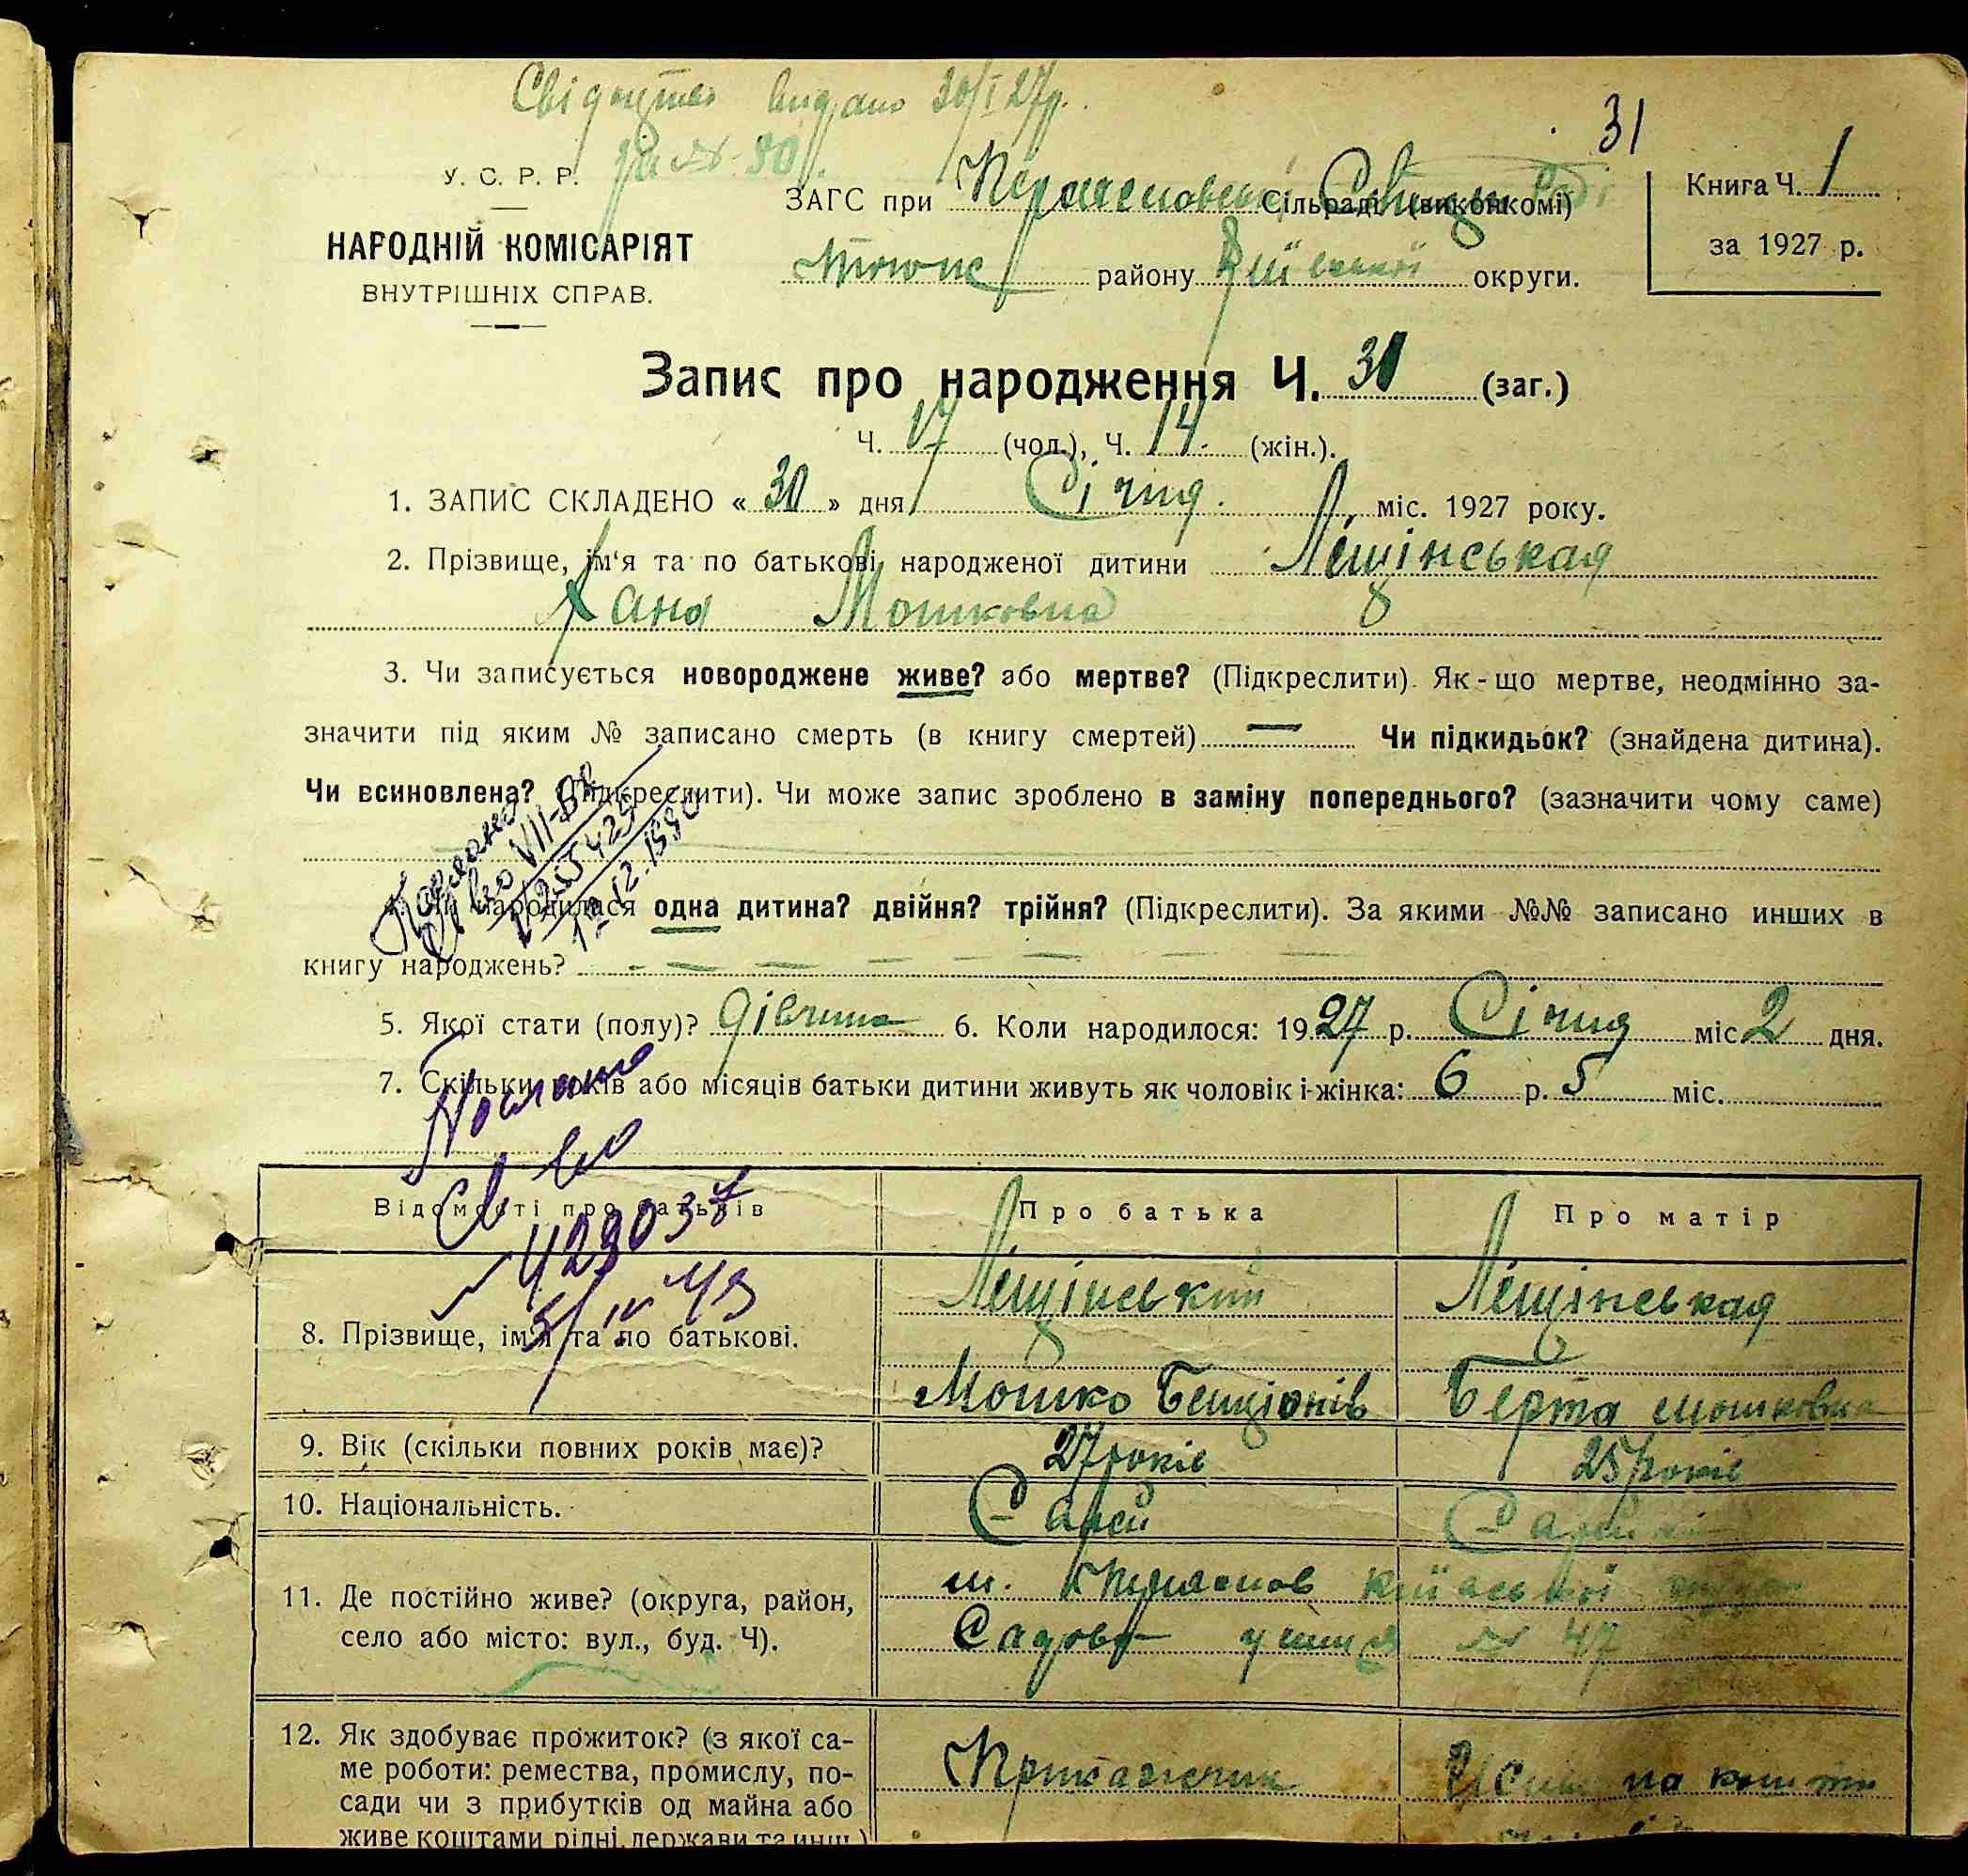 Свідоцтво видано 30/I 27р.
за № 30
31
У. С. Р. Р.
НАРОДНІЙ КОМІСАРІЯТ
ВНУТРІШНІХ СПРАВ.
ЗАГС при Сільраді (виконкомі)
району Київської округи.
Книга Ч. 1
за 1927 р.
Запис про народження Ч. 31 (заг.)
Ч. 17 (чол.), Ч. 14 (жін.).
1. ЗАПИС СКЛАДЕНО « 30 » дня Січня міс. 1927 року.
2. Прізвище, ім'я та по батькові народженої дитини Лещінськая
Хана Мошковна
3. Чи записується новороджене живе? або мертве? (Підкреслити). Як-що мертве, неодмінно за-
значити під яким № записано смерть (в книгу смертей) — Чи підкидьок? (знайдена дитина).
Чи всиновлена? (Підкреслити). Чи може запис зроблено в заміну попереднього? (зазначити чому саме)
народилася одна дитина? двійня? трійня? (Підкреслити). За якими №№ записано инших в
книгу народжень? - — — — — — — —
5. Якої стати (полу)? дівчина 6. Коли народилося: 1927 р. Січня міс 2 дня.
7. Скільки років або місяців батьки дитини живуть як чоловік і-жінка: 6 р. 5 міс.
Послано
Св во
№ 429037
5/IV 49
Відомості про батьків Про батька Про матір
8. Прізвище, ім'я та по батькові.
Лещінський Лещінськая
Мошко Бенціонів Берта Мошковна
9. Вік (скільки повних років має)? 27 років 25 років
10. Національність.
11. Де постійно живе? (округа, район,
село або місто: вул., буд. Ч).
м. Київської
Садова улиця № 47
12. Як здобуває прожиток? (з якої са-
ме роботи: ремества, промислу, по-
сади чи з прибутків од майна або
живе коштами рідні, держави та инш.)
Приказчик на кошти